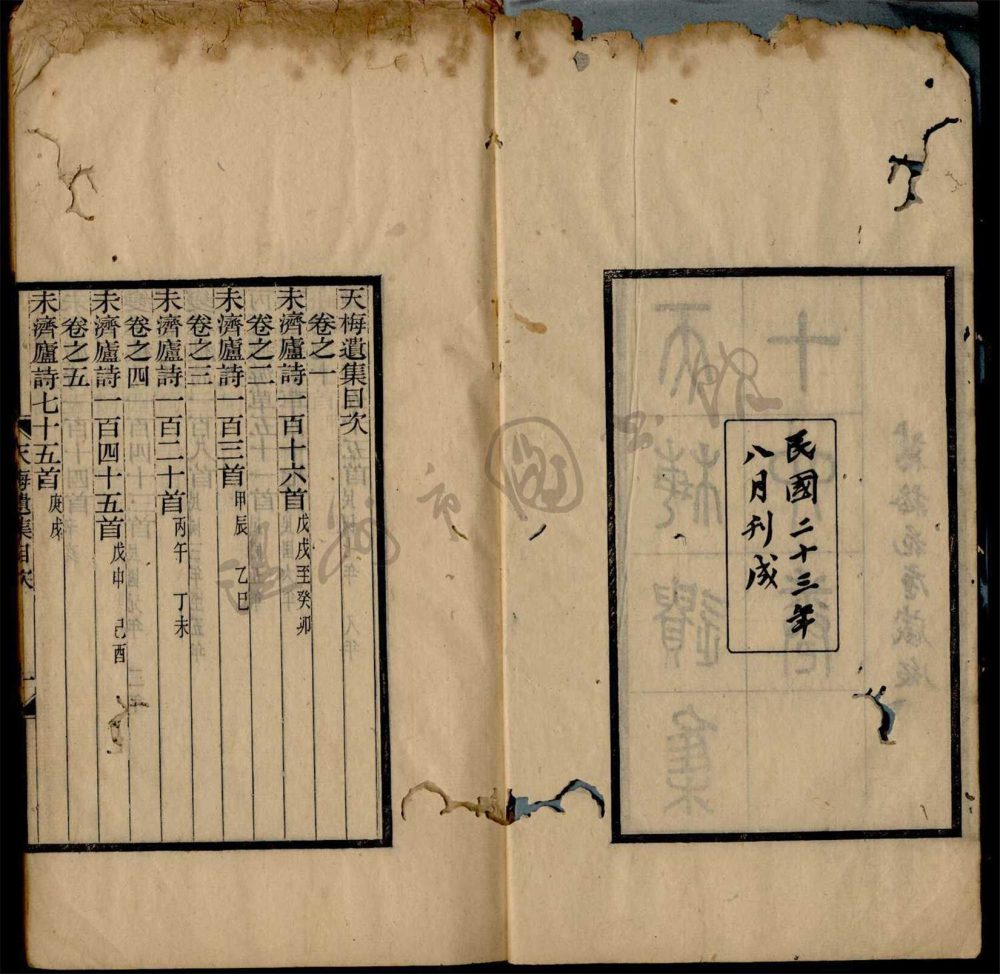 民國二十三年
八月刊成
天梅遺集目次
卷之一
未濟廬詩一百十六首 戊戌至癸卯
卷之二
未濟廬詩一百三首 甲辰 乙巳
卷之三
未濟廬詩一百二十首 丙午 丁未
卷之四
未濟廬詩一百四十五首 戊申 己酉
卷之五
未濟廬詩七十五首 庚戌
天梅遺集目次
一